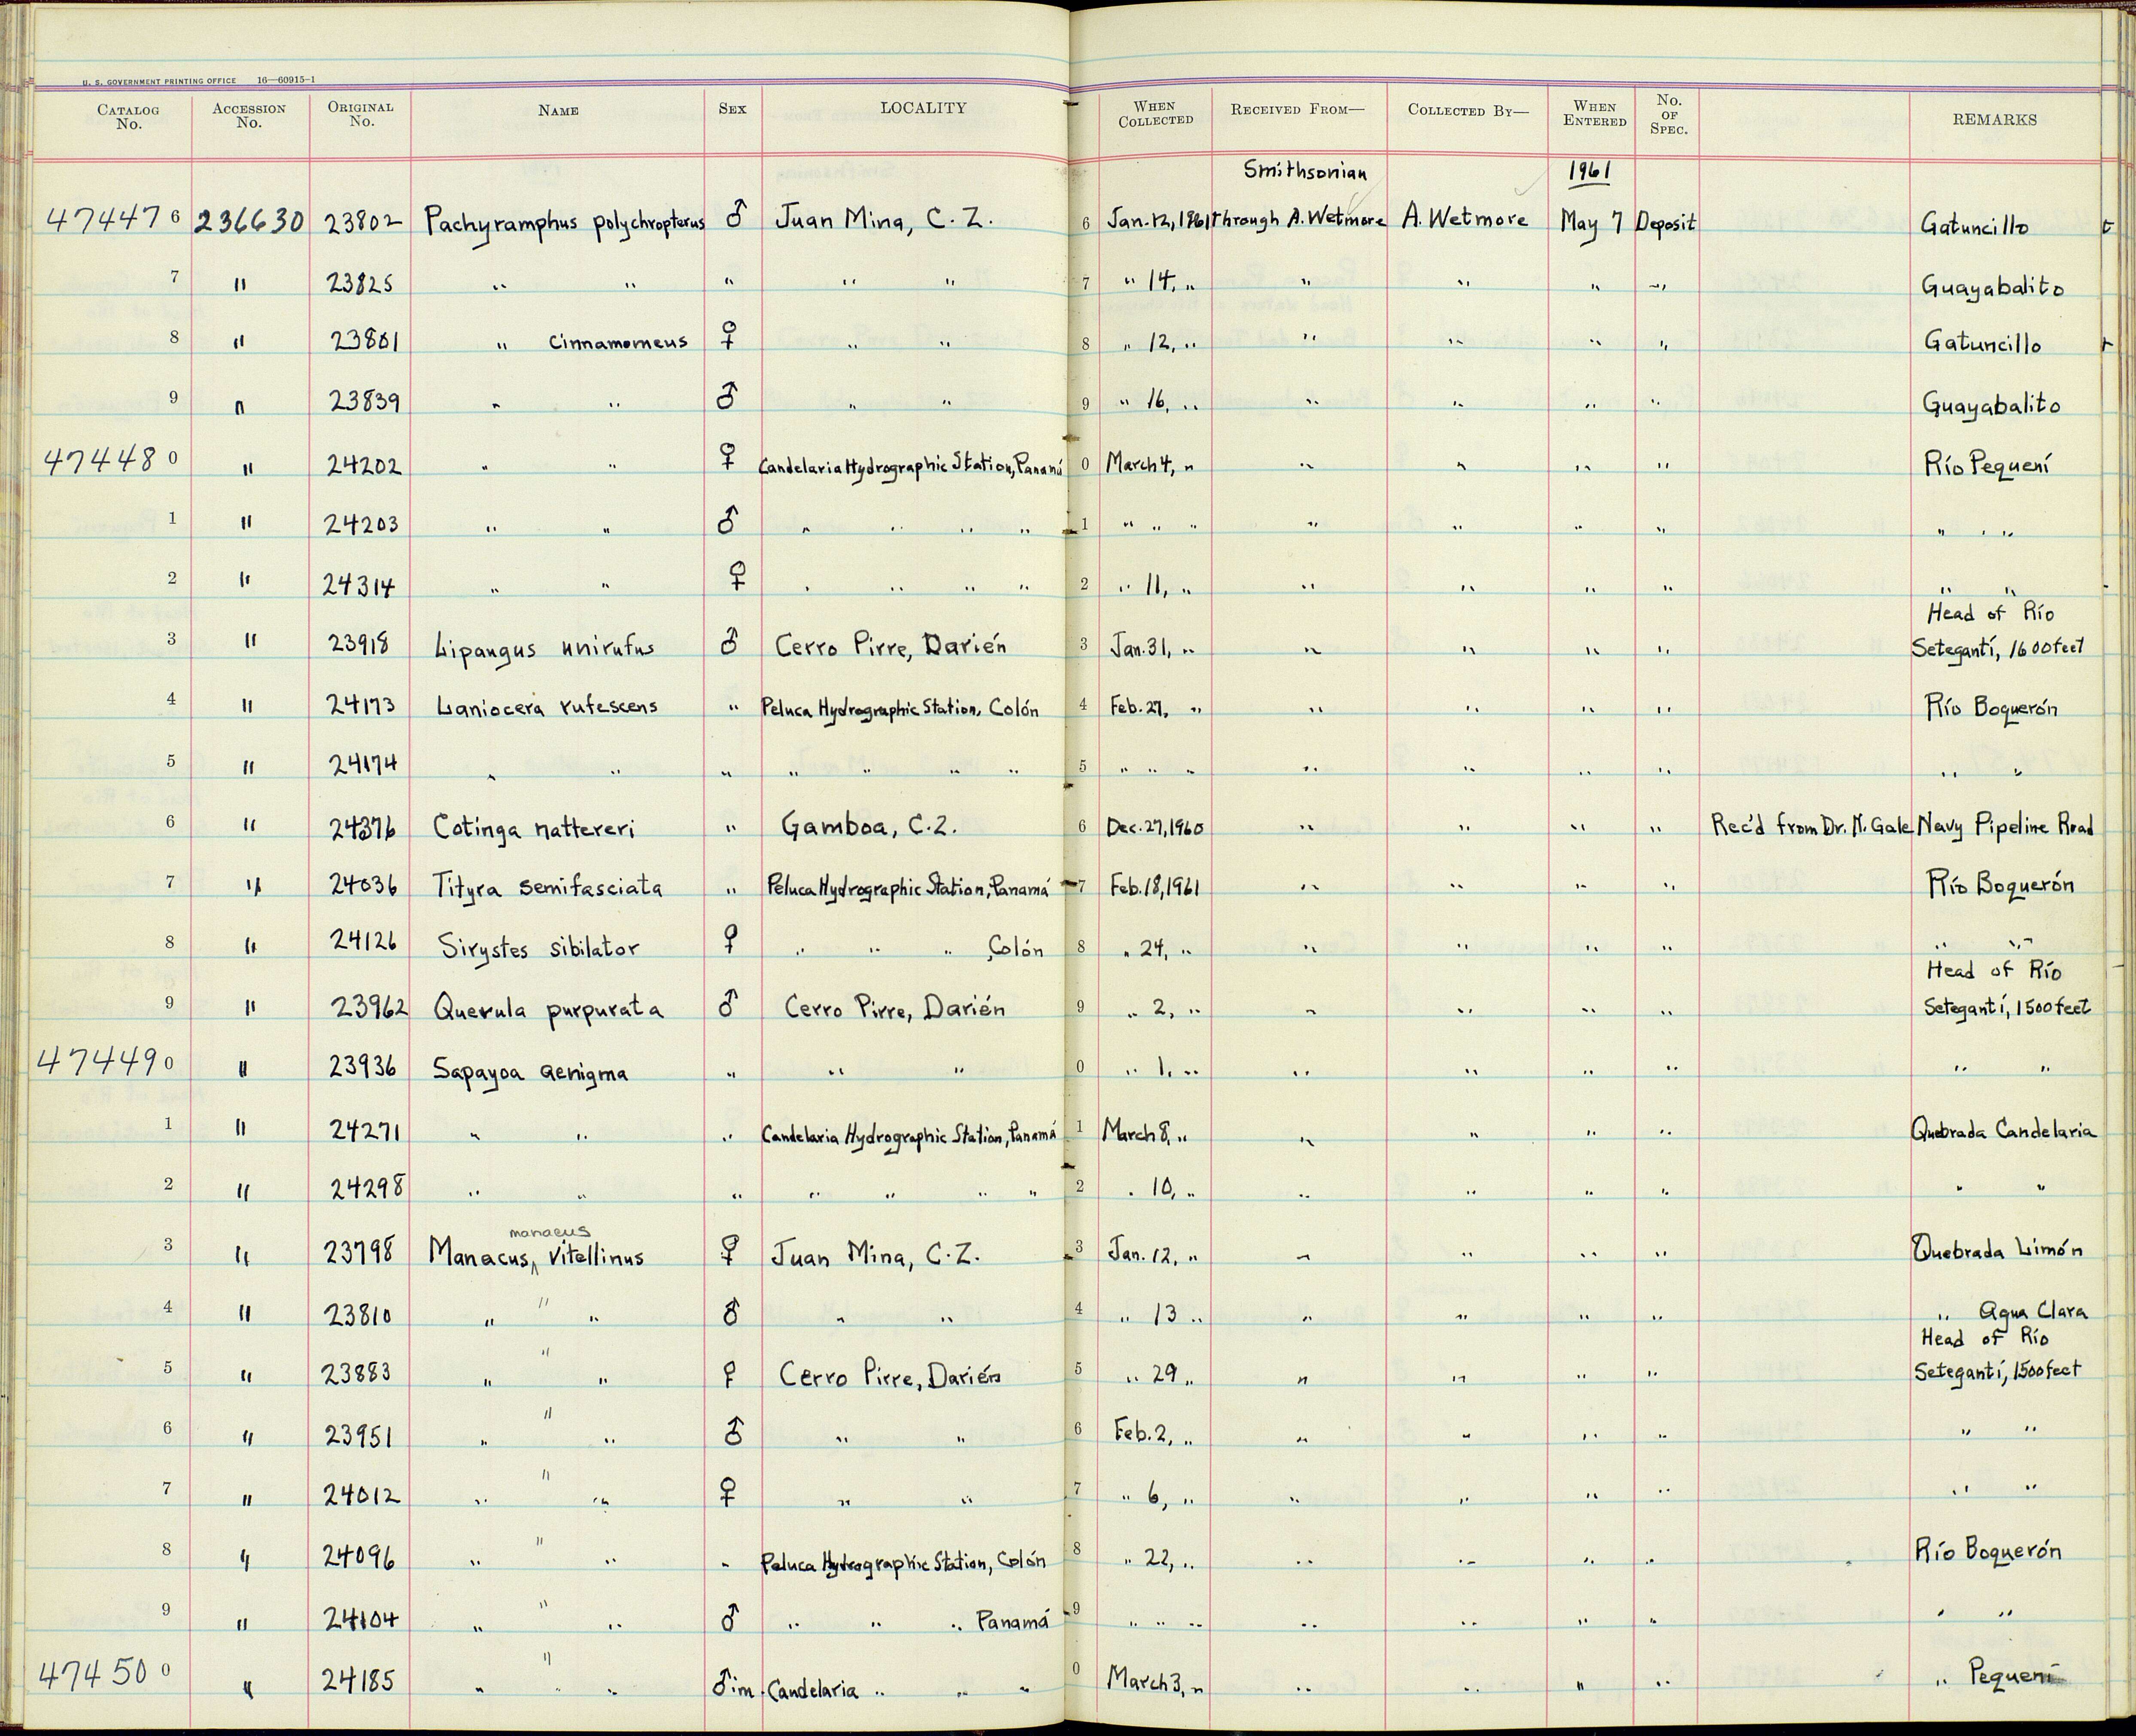 U. S. GOVERNMENT PRINTING OFFICE 16—60915-1
CATALOG No. ACCESSION No. ORIGINAL No. NAME SEX LOCALITY WHEN COLLECTED RECEIVED FROM— COLLECTED BY— WHEN ENTERED No. OF SPEC. REMARKS
Smithsonian 1961
474476 236630 23802 Pachyramphus polychropterus ♂ Juan Mina, C.Z. 6 Jan. 12, 1961 through A. Wetmore A. Wetmore May 7 Deposit Gatuncillo
7 " 23825 " " " " " 7 " 14, " " " " " Guayabalito
8 " 23801 " cinnamomeus ♀ " " 8 " 12, " " " " " Gatuncillo
9 " 23839 " " ♂ " " 9 " 16, " " " " " Guayabalito
474480 " 24202 " " ♀ Candelaria Hydrographic Station, Panamá 0 March 4, " " " " " Río Pequení
1 " 24203 " " ♂ " " " " 1 " " " " " " " " "
2 " 24314 " " ♀ " " " " 2 " 11, " " " " " " "
Head of Río
3 " 23918 Lipangus unirufus ♂ Cerro Pirre, Darién 3 Jan. 31, " " " " " Setegantí, 1600 feet
4 " 24173 Laniocera rufescens " Peluca Hydrographic Station, Colón 4 Feb. 27, " " " " " Río Boquerón
5 " 24174 " " " " " " " 5 " " " " " " " " "
6 " 24376 Cotinga nattereri " Gamboa, C.Z. 6 Dec. 27, 1960 " " " " Rec'd from Dr. N. Gale Navy Pipeline Road
7 " 24036 Tityra semifasciata " Peluca Hydrographic Station, Panamá 7 Feb. 18, 1961 " " " " Río Boquerón
8 " 24126 Sirystes sibilator ♀ " " " Colón 8 " 24, " " " " " " "
Head of Río
9 " 23962 Querula purpurata ♂ Cerro Pirre, Darién 9 " 2, " " " " " Setegantí, 1500 feet
474490 " 23936 Sapayoa aenigma " " " 0 " 1, " " " " " " "
1 " 24271 " " " Candelaria Hydrographic Station, Panamá 1 March 8, " " " " " Quebrada Candelaria
2 " 24298 " " " " " " " 2 " 10, " " " " " " "
manacus
3 " 23798 Manacus, ^ vitellinus ♀ Juan Mina, C.Z. 3 Jan. 12, " " " " " Quebrada Limón
4 " 23810 " " " ♂ " " 4 " 13 " " " " " " Agua Clara
Head of Río
5 " 23883 " " " ♀ Cerro Pirre, Darién 5 " 29 " " " " " Setegantí, 1500 feet
6 " 23951 " " " ♂ " " 6 Feb. 2, " " " " " " "
7 " 24012 " " " ♀ " " 7 " 6, " " " " " " "
8 " 24096 " " " " Peluca Hydrographic Station, Colón 8 " 22, " " " " " Río Boquerón
9 " 24104 " " " ♂ " " " Panamá 9 " " " " " " " " "
474500 " 24185 " " " ♂ im. Candelaria " " " 0 March 3, " " " " " " Pequení